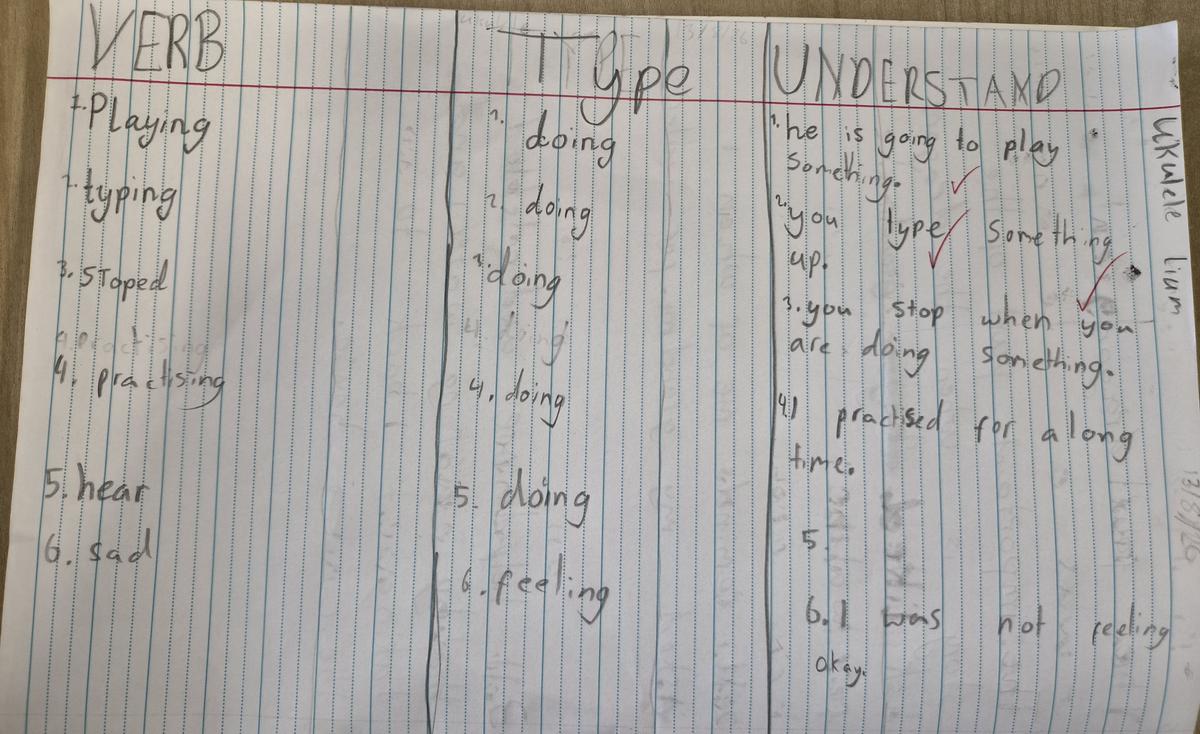 VERB
Type
UNDERSTAND
1. Playing
2. typing
3. stoped
4. practising
4. practising
5. hear
6. sad
1. doing
2. doing
3. doing
4. doing
4. doing
5. doing
6. feeling
1. he is going to play
something.
2. you type something
up.
3. you stop when you
are doing something.
4. I practised for a long
time.
5.
6. I was not feeling
okay.
Ukulele lium
13/8/26